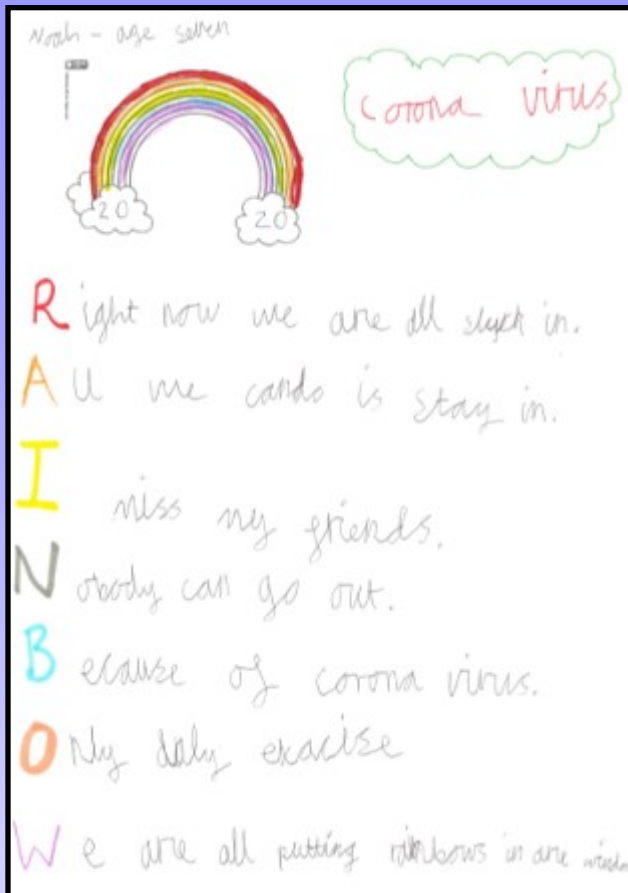 Noah - age seven
corona virus
20 20
Right now we are all stuck in.
All we cando is stay in.
I miss my friends.
Nobody can go out.
Because of corona virus.
Only daly exacise
We are all putting rainbows in are